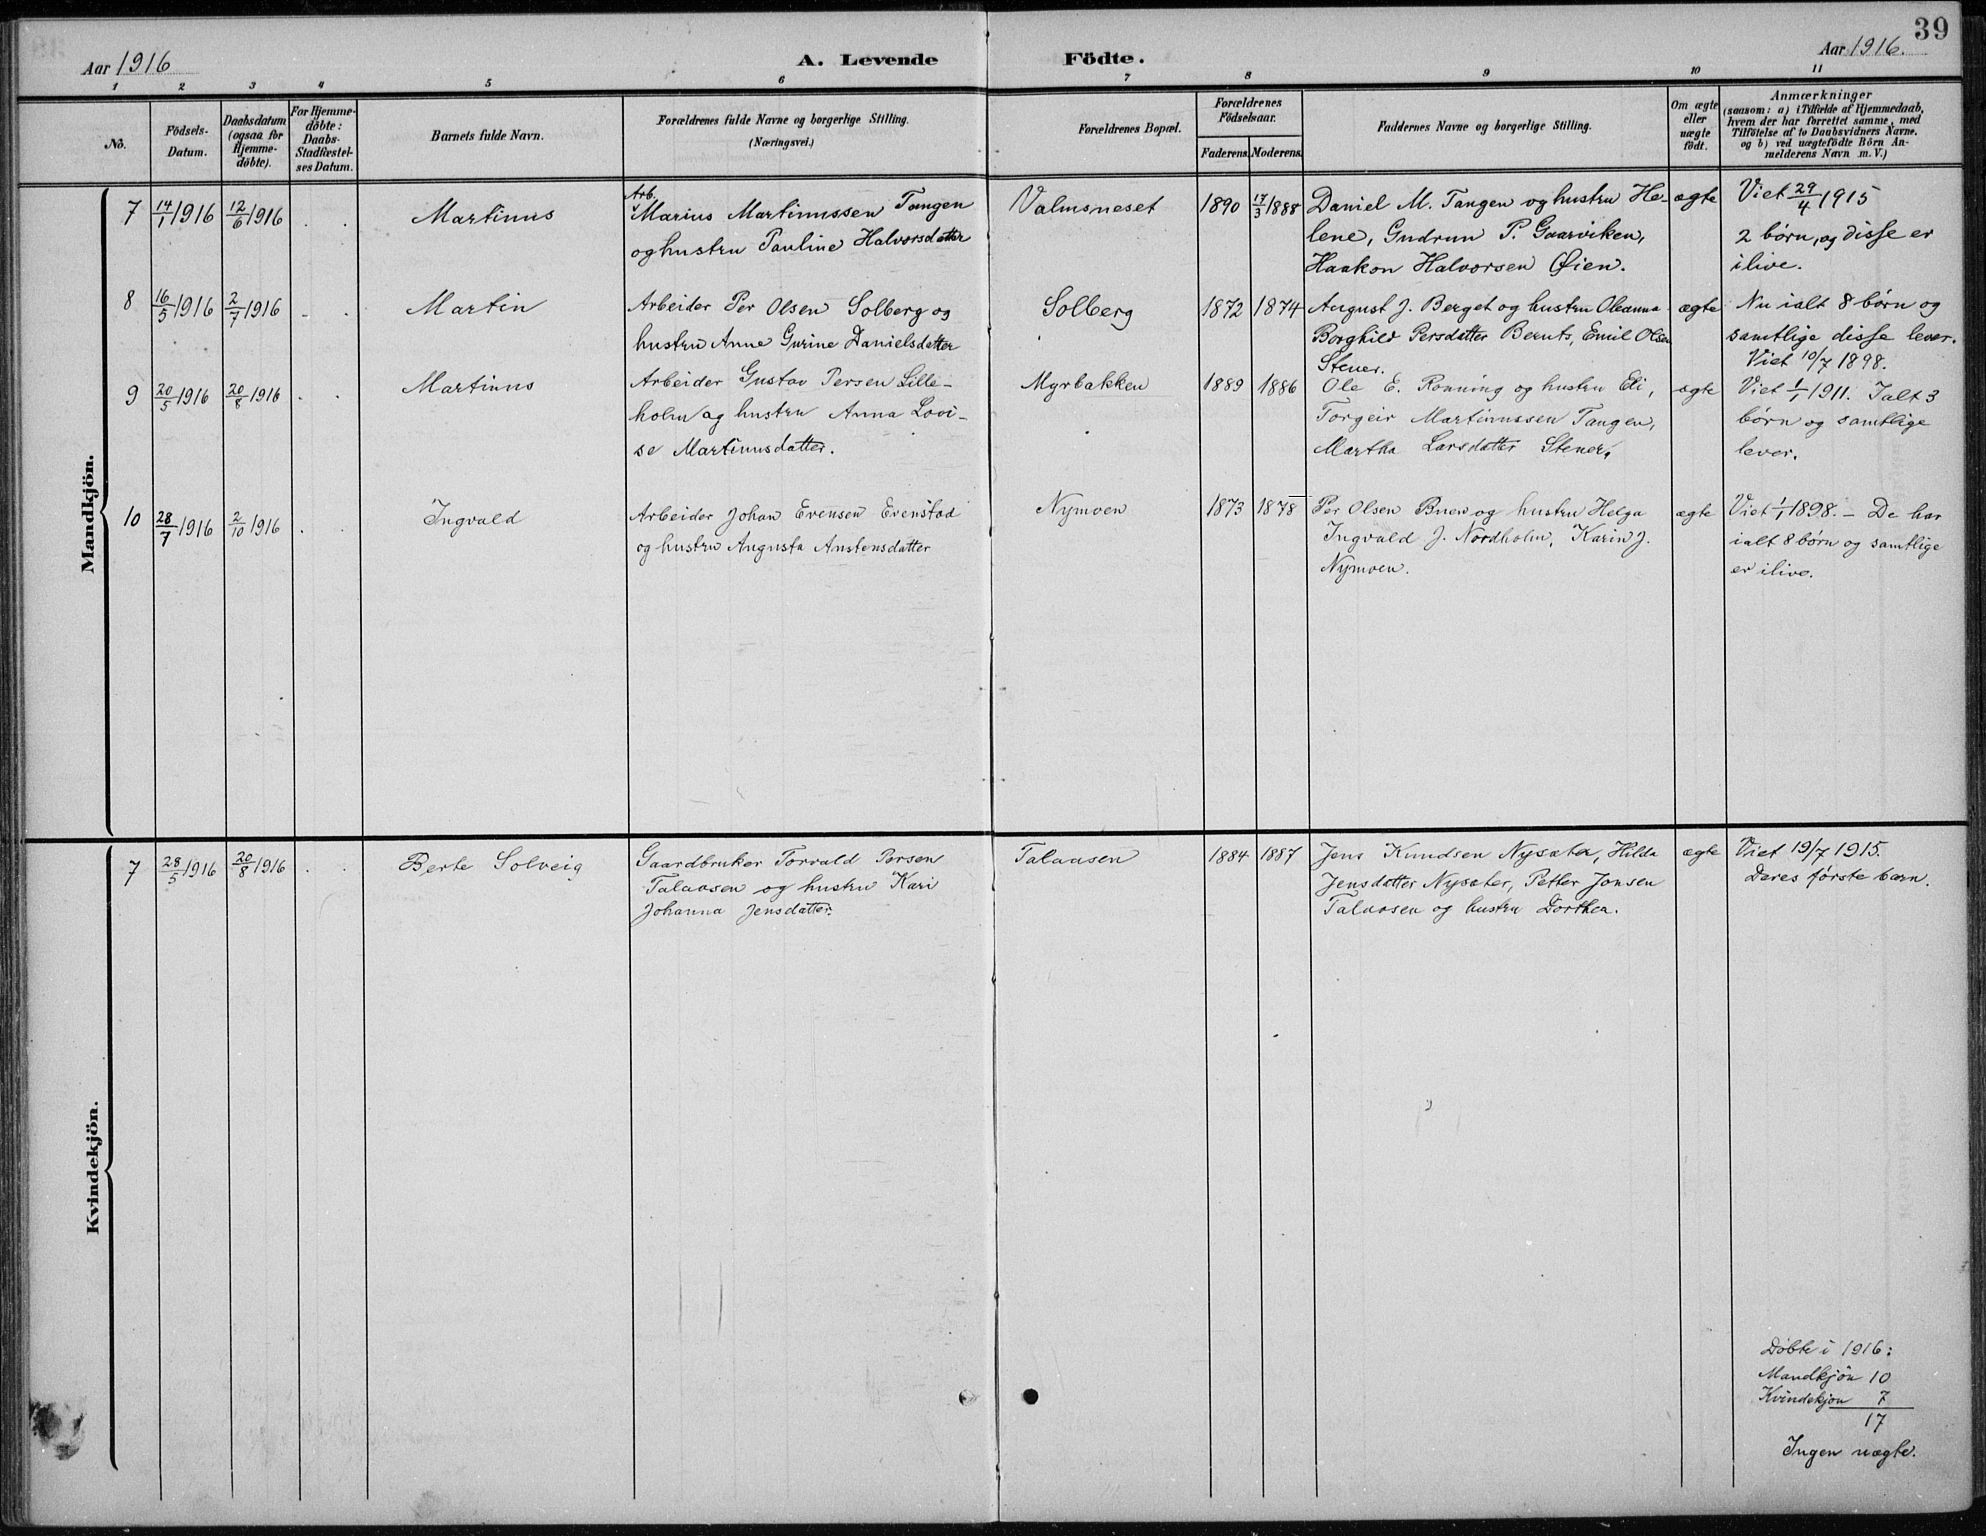 39
Aar 1916
A. Levende Födte.
Aar 1916.
1 2 3 4 5 6 7 8 9 10 11
No.
Födsels-
Datum.
Daabsdatum
(ogsaa for
Hjemme-
döbte).
For Hjemme-
döbte:
Daabs-
Stadfæstel-
ses Datum.
Barnets fulde Navn.
Forældrenes fulde Navne og borgerlige Stilling.
(Næringsvei.)
Forældrenes Bopæl.
Forældrenes
Födselsaar.
Faderens. Moderens.
Faddernes Navne og borgerlige Stilling.
Om ægte
eller
uægte
födt.
Anmærkninger
(saasom: a) i Tilfælde af Hjemmedaab,
hvem der har forrettet samme, med
Tilföielse af to Daabsvidners Navne.
og b) ved uægtefödte Börn An-
melderens Navn m. V.)
Mandkjön.
7 14/1 1916 12/6 1916 Martinus
Arb.
Marius Martinussen Tangen
og hustru Pauline Halvorsdatter
Valmsneset 1890 17/3 1888
Daniel M. Tangen og hustru He-
lene, Gudrun P. Gaarviken,
Haakon Halvorsen Øien.
ægte
Viet 29/4 1915
2 børn, og disse er
ilive.
8 16/5 1916 2/7 1916 Martin
Arbeider Per Olsen Solberg og
hustru Anne Gurine Danielsdatter
Solberg 1872 1874
August J. Berget og hustru Oleanna
Borghild Persdatter Bernts, Emil Olsen
Stener.
ægte
Nu ialt 8 børn og
samtlige disse lever.
Viet 10/7 1898.
9 20/5 1916 20/8 1916 Martinus
Arbeider Gustav Persen Lille-
holm og hustru Anna Lovi-
se Martinusdatter.
Myrbakken 1889 1886
Ole E. Rønning og hustru Eli,
Torgeir Martinussen Tangen,
Martha Larsdatter Stener.
ægte
Viet 1/1 1911. Ialt 3
børn og samtlige
lever.
10 28/7 1916 2/10 1916 Ingvald
Arbeider Johan Evensen Evenstad
og hustru Augusta Anstensdatter
Nymoen 1873 1878
Per Olsen og hustru Helga
Ingvald J. Nordholm, Karin J.
Nymoen.
ægte
Viet 1/1 1898. – De har
ialt 8 børn og samtlige
er ilive.
Kvindekjön.
7 28/5 1916 20/8 1916 Berte Solveig
Gaardbruker Torvald Persen
Talaasen og hustru Kari
Johanna Jensdatter.
Talaasen 1884 1887
Jens Knudsen Nysæter, Hilda
Jensdatter Nysæter, Petter Jonsen
Talaasen og hustru Dorthea.
ægte
Viet 19/7 1915.
Deres første barn.
Døbte i 1916:
Mandkjön 10
Kvindekjøn 7
17
Ingen uægte.